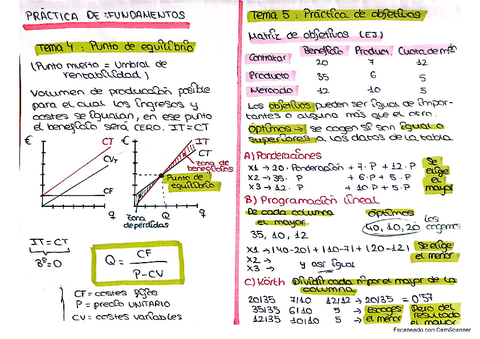 PRÁCTICA DE FUNDAMENTOS
Tema 4: Punto de equilibrio
(Punto muerto = Umbral de
rentabilidad)
Volumen de producción posible
para el cual los ingresos y
costes se igualan, en ese punto
el beneficio será CERO. IT=CT
€
CT
CVT
CF
q
€
IT
CT
Zona de
beneficios
Punto de
equilibrio
Zona
de pérdidas
Q
q
IT=CT
Bº=0
Q = CF
P-CV
CF = costes fijos
P = precio UNITARIO
CV = costes variables
Tema 5: Práctica de objetivos
Matriz de objetivos (EJ)
Beneficio Product. Cuota de
Contratar 20 7 12
Producto 35 6 5
Mercado 12 10 5
Los objetivos pueden ser igual de impor-
tantes o alguno más que el otro.
Óptimos → se cogen si son igual o
superiores a los datos de la tabla
A) Ponderaciones
X1 → 20 · Ponderación + 7·P + 12·P
X2 → 35 · P + 6·P + 5·P
X3 → 12 · P + 10·P + 5·P
Se
elige
el
mayor
B) Programación lineal
De cada columna
el mayor.
35, 10, 12
óptimos
40, 10, 20
los
cogemos
X1 → |40-20| + |10-7| + |20-12|
X2 →
X3 → y así igual
Se elige
el menor
C) Körth Dividir cada nº por el mayor de la
columna
20|35 7|10 12|12 → 20|35 = 0'57
35|35 6|10 5 → Escoges
12|35 10|10 5 → el menor
Pero del
resultado
el mayor
Escaneado con CamScanner